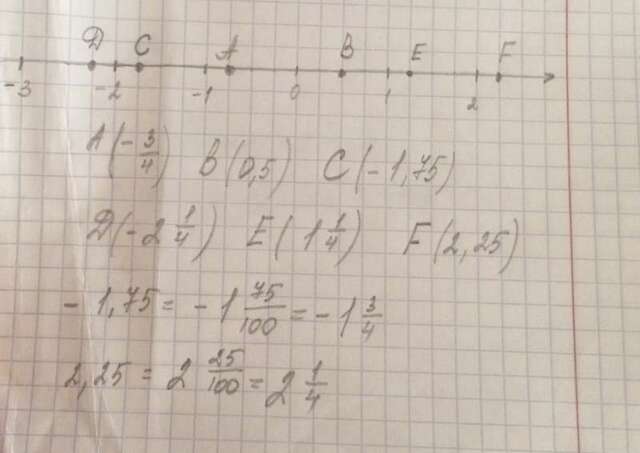 D C A B E F
-3 -2 -1 0 1 2
A(-3/4) B(0,5) C(-1,75)
D(-2 1/4) E(1 1/4) F(2,25)
-1,75 = -1 75/100 = -1 3/4
2,25 = 2 25/100 = 2 1/4